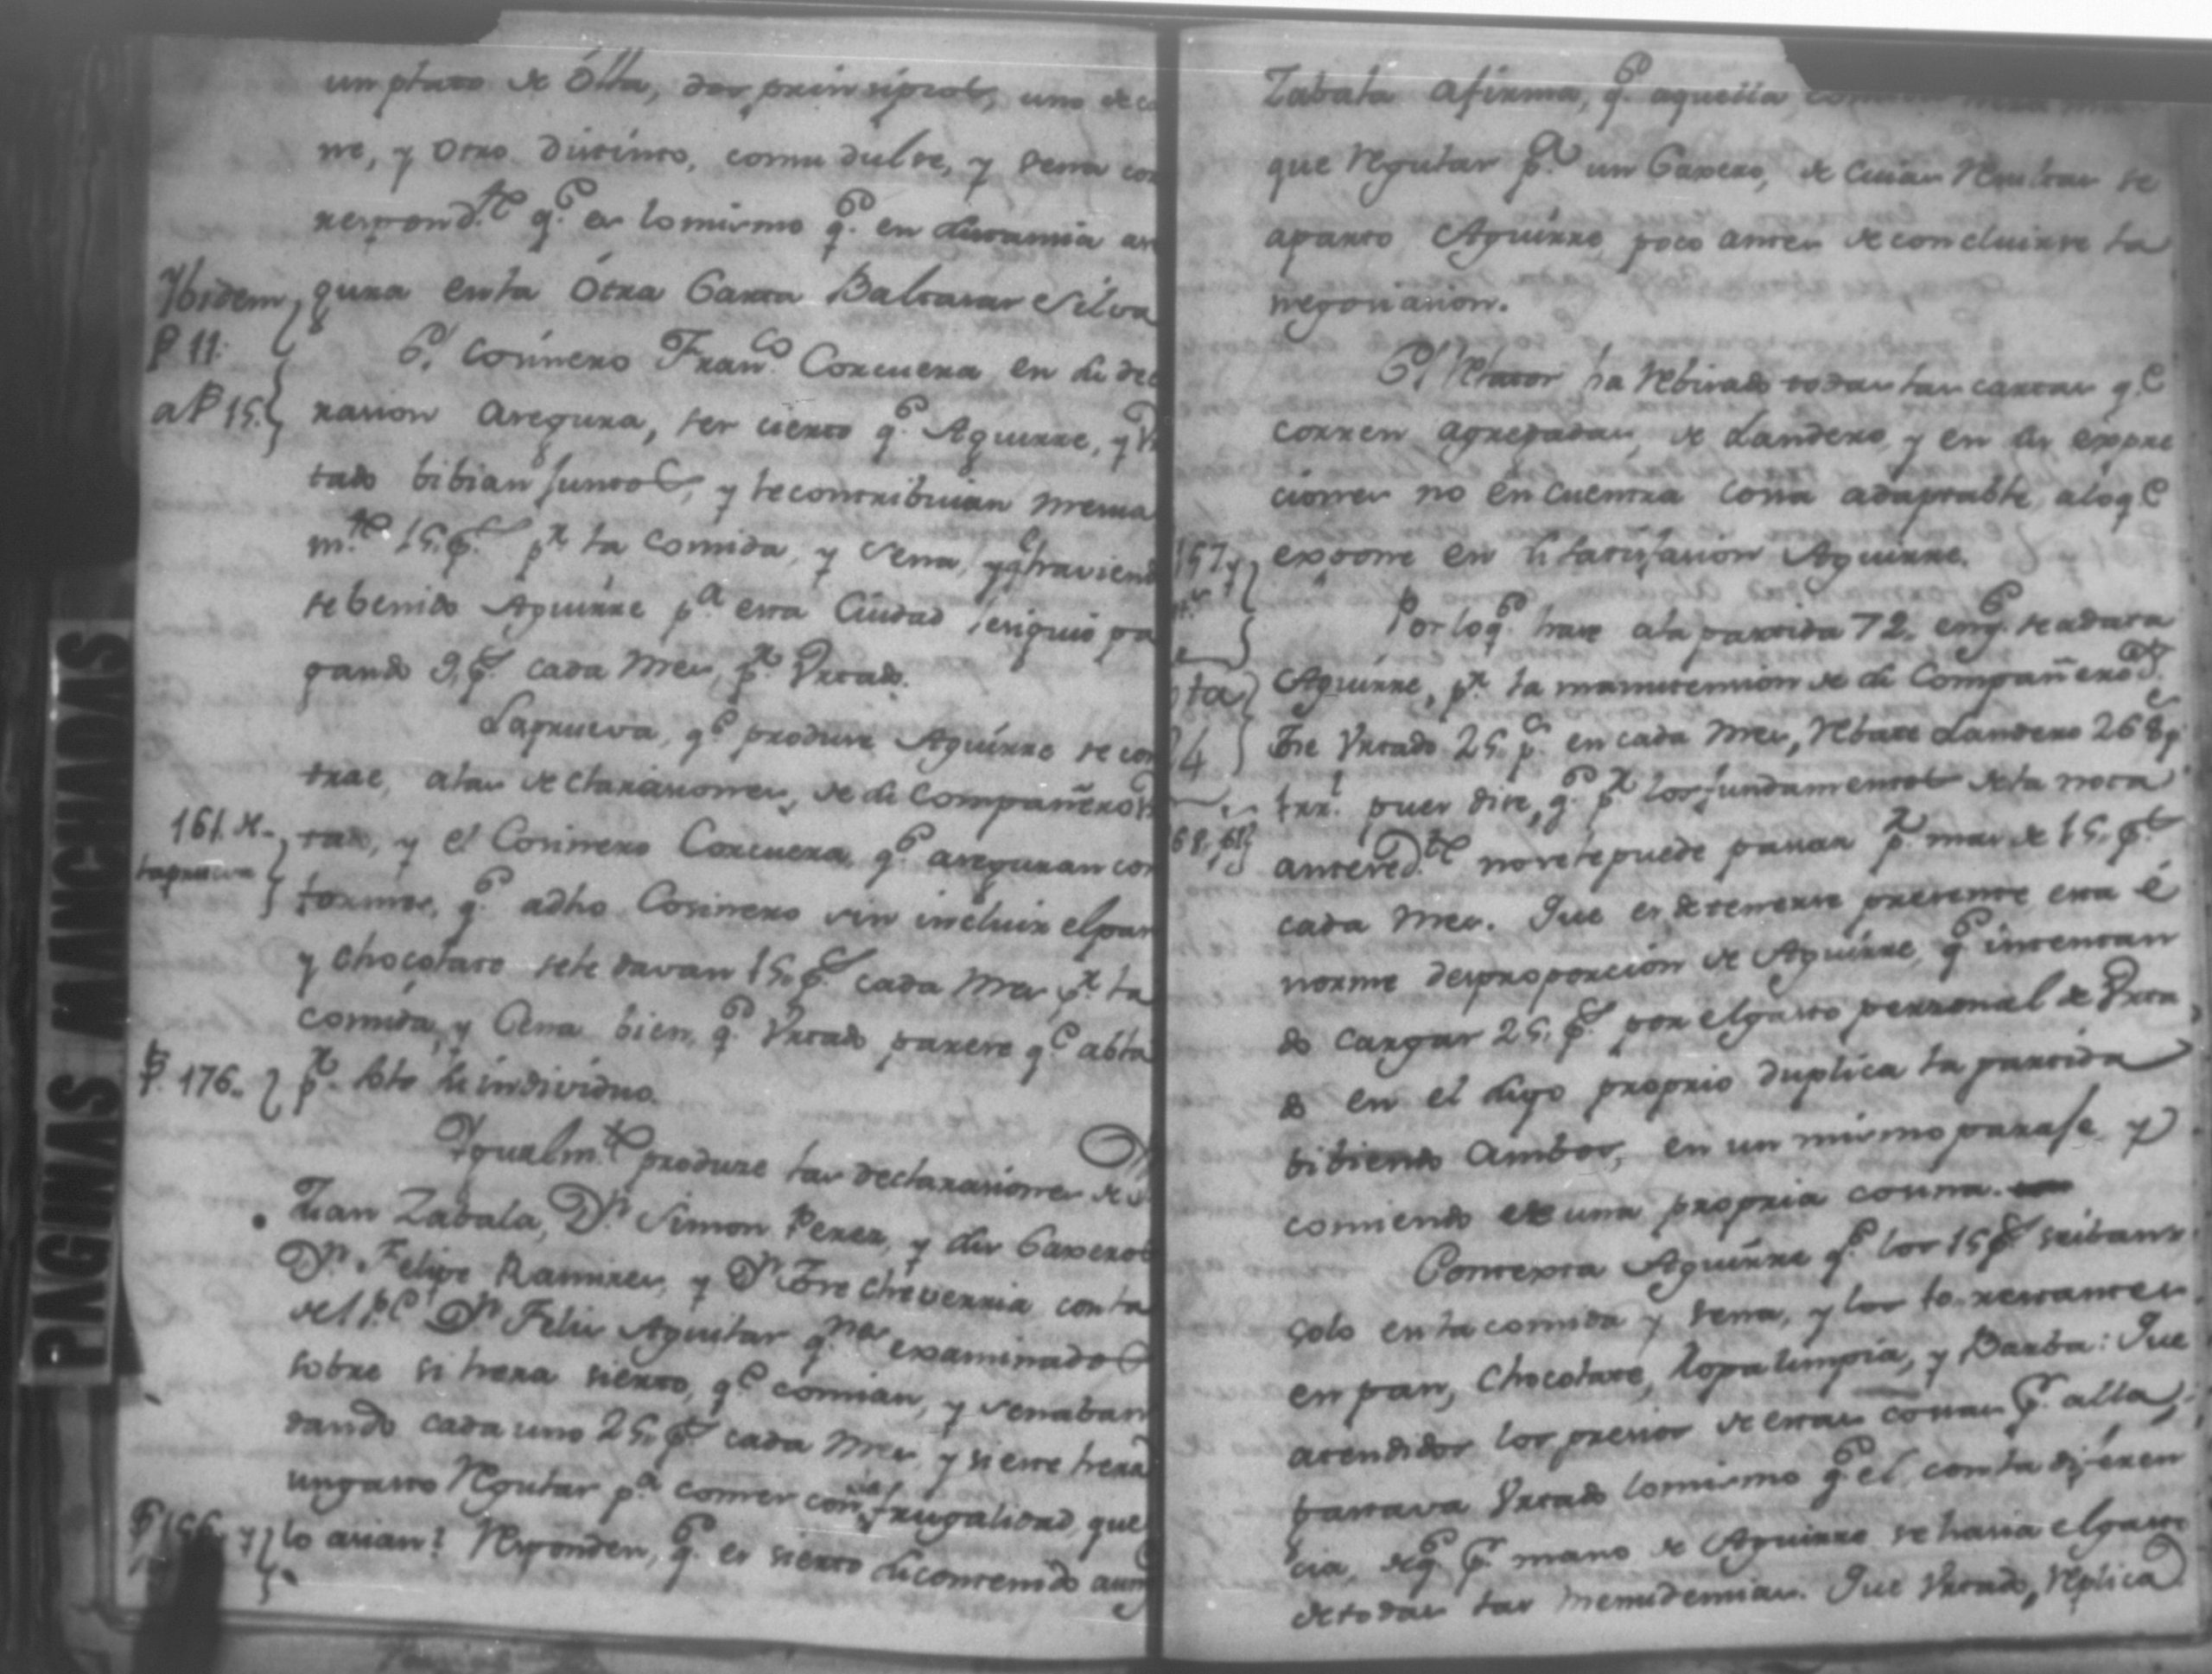 un plato de Olla, dos prinsipios, uno de ca
ne, y otro distinto, como dulse, y sena cor
respond.te q.e es lo mismo q.e en sustansia ase
Ybidem, gura en la Otra Carta Baltasar Silva
P 11: El Cosinero Fran.co Corcuera en su dec
al P 15. rasion asegura, ser cierto q.e Aguirre, y Vr
tado bibian juntos, y le contribuian mensa
m.te 15. p.s p.r la comida, y sena, y q.e haviend
se benido Aguirre p.a esta Ciudad, siguió pa
gando 9. p.s cada Mes, p.r Vrtado.
La prueva, q.e produse Aguirre se con
trae, a las declarasiones, de su Compañero Vr
161. de tado, y el Cosinero Corcuera, q.e aseguran con
la prueva formes, q.e a dho Cosinero sin incluir el pan
y chocolate se le davan 15. p.s cada Mes p.r la
comida, y Cena bien, q.e Vrtado parese q.e abla
P. 176. p.r solo su individuo.
Ygualm.te produse las declarasiones de D.n
Juan Zabala, D.n Simon Perez, y sus Caxeros
D.n Felipe Ramires, y D.n Jose Cheverria con la
del P.e D.n Felis Aguilar q.nes examinados
sobre si hera sierto, q.e comian, y senaban
dando cada uno 25. p.s cada Mes, y si este hera
un gasto Regular p.a comer con frugalidad, que
lo asian? Responden, q.e es sierto su contenido aunq
Zabala afirma, q.e aquella
que Regular p.a un Caxero, de cuias Resultas se
aparto Aguirre, poco antes de concluirse la
negosiasion.
El Relator ha Rebisado todas las cartas q.e
corren agregadas, de Landero, y en sus expre
ciones no encuentra cosa adaptable, a lo q.e
157 y expone en su satisfasion Aguirre.
Por lo q.e hase a la partida 72. en q.e se adata
ta Aguirre, p.r la manutension de su Compañero D.n
4 Jose Vrtado 25. p.s en cada Mes, Rebate Landero 268 p.s
trr.s pues dise, q.e p.r los fundamentos de la nota
68, 69 anteced.te no se le puede pasar p.r mas de 15. p.s
cada Mes. Que es de tenerse presente esta é
norme desproporción de Aguirre, q.e intentan
do cargar 25. p.s por el gasto personal de Vrta
do en el suyo proprio duplica la partida
bibiendo ambos, en un mismo paraje y
comiendo de una propria cosina.
Contexta Aguirre q.e los 15 p.s se iban
solo en la comida y sena, y los 10. restantes
en pan, Chocolate, Ropa limpia, y Barba: Que
atendidos los presios de estas cosas p.r alla,
gastava Vrtado lo mismo q.e el, con la diferen
cia, de q.e p.r mano de Aguirre se hasia el gasto
de todas las menudensias. Que Vrtado, Replica
PAGINAS MANCHADAS